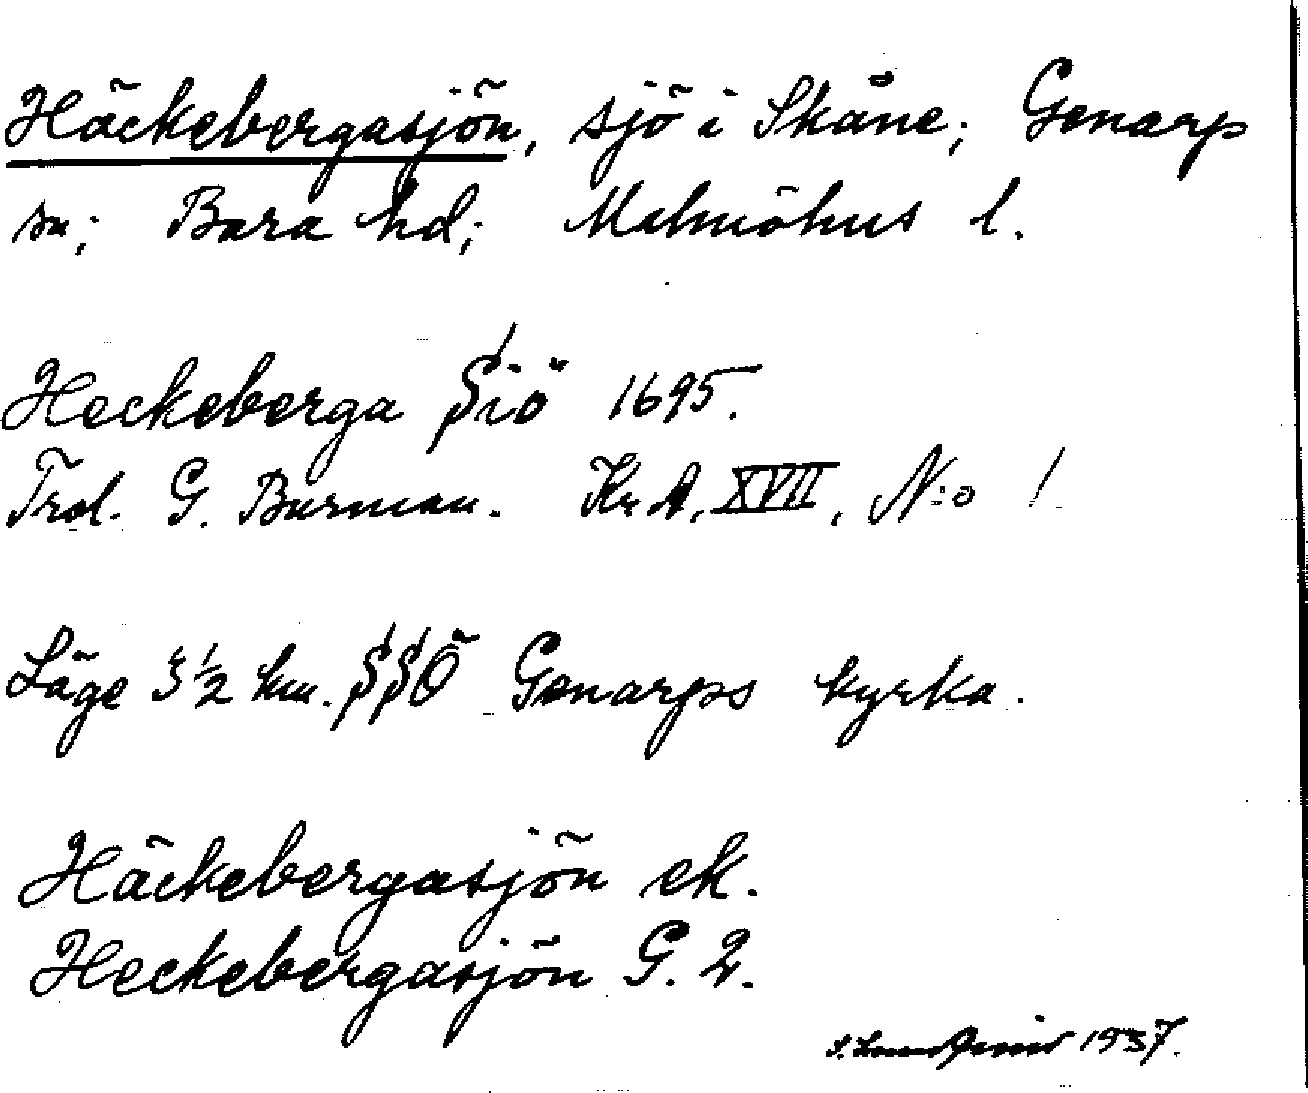 Häckebergasjön, sjö i Skåne; Genarp
sn; Bara hd; Malmöhus l.
Heckeberga Siö 1695.
Trol. G. Burman. Kr. A. XVII, N:o 1
Läge 3 1/2 km. SSÖ Genarps kyrka.
Häckebergasjön ek.
Heckebergasjön G. 2.
1937.